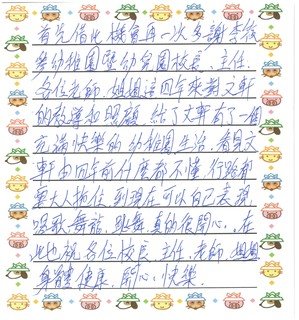 首先借此機會再一次多謝李筱
學幼稚園暨幼兒園校長、主任、
各位老師、姐姐這四年來對文軒
的教導和照顧,給了文軒有了一個
充滿快樂的幼稚園生活。看見文
軒由四年前什麼都不懂,行路都
要大人拖住,到現在可以自己表現
唱歌舞龍、跳舞,真的很開心。在
此也祝各位校長、主任、老師、姐姐
身體健康、開心、快樂。